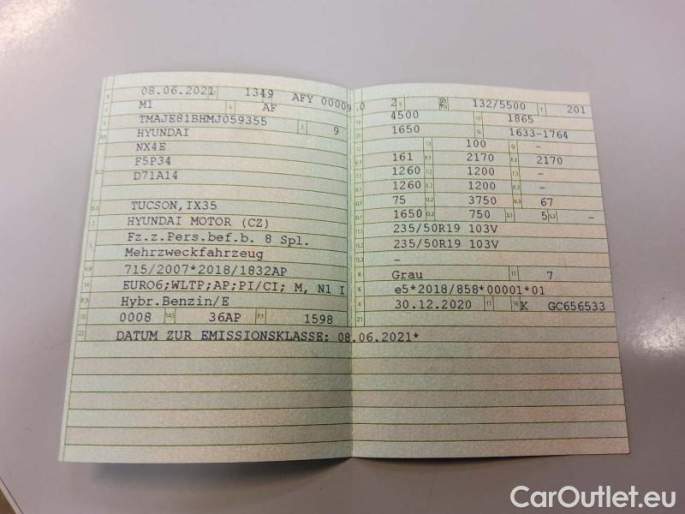 08.06.2021 1349 AFY 00009
M1 AF
TMAJE81BHMJ059355 9
HYUNDAI
NX4E
F5P34
D71A14
TUCSON,IX35
HYUNDAI MOTOR (CZ)
Fz.z.Pers.bef.b. 8 Spl.
Mehrzweckfahrzeug
715/2007*2018/1832AP
EURO6;WLTP;AP;PI/CI; M, N1 I
Hybr.Benzin/E
0008 36AP 1598
DATUM ZUR EMISSIONSKLASSE: 08.06.2021*
2 132/5500 201
4500 1865
1650 1633-1764
100 -
161 2170 2170
1260 1200 -
1260 1200 -
75 3750 67
1650 750 5 -
235/50R19 103V
235/50R19 103V
-
Grau 7
e5*2018/858*00001*01
30.12.2020 K GC656533
CarOutlet.eu